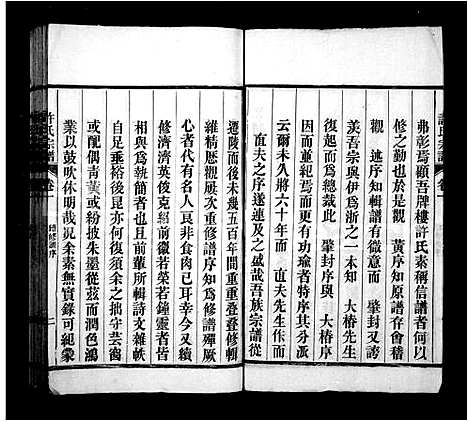 許氏宗譜 卷一
弗彰焉顧吾牌樓許氏素稱信譜者何以
修之勤也於是觀 黃序知原譜存會稽
觀 述序知輯譜有微意而 肇封又謗
羨吾宗與伊爲浙之一本知 大椿先生
相與爲總裁此 肇封序與 大椿序
因而重紀焉而更有功瑜者特序其分派
云爾未久將六十年而 直夫先生作而
直夫之序遂連之盛哉吾族宗譜從
遷陵而後未幾五百年間重重叠叠修輯
維精歷觀厥次重修譜序知爲修譜殫厥
代代有名人艮非食肉已耳幸今又續
修濟濟英俊克紹前徽若若鐘靈者皆
相與爲執簡者也且前輩所輯詩文雜帙
自足垂裕後昆亦何復須余之拙守芸窗
或配偶青黃或粉披朱墨從茲而潤色鴻
業以鼓吹休明哉況余素無實錄可紀彙
許氏宗譜 卷一 二